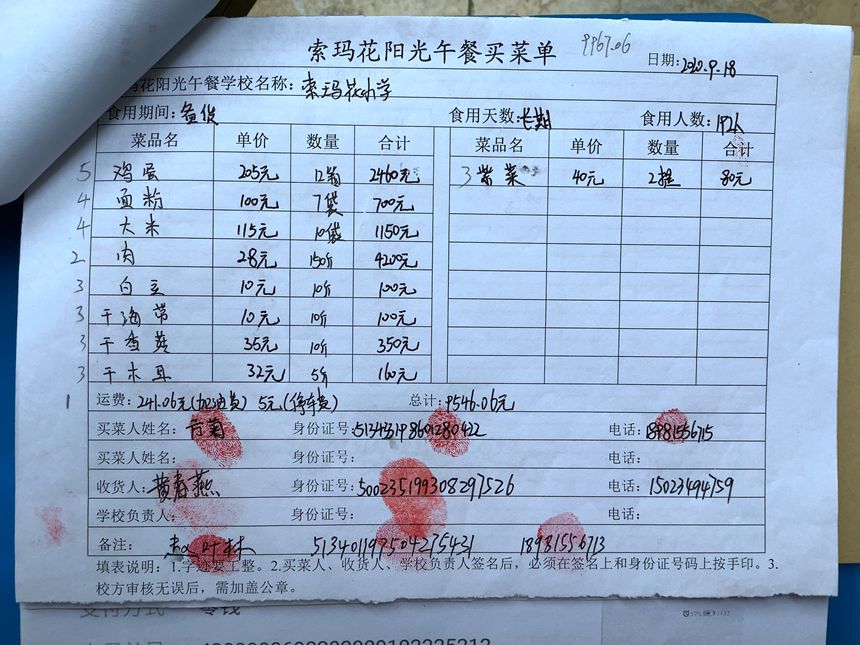 索玛花阳光午餐买菜单 9967.06
日期:2020.9.18
玛花阳光午餐学校名称: 索玛花小学
食用期间: 食用天数:长期 食用人数:1926
菜品名 单价 数量 合计 菜品名 单价 数量 合计
5 鸡蛋 205元 12箱 2460元 3 紫菜 40元 2提 80元
4 面粉 100元 7袋 700元
4 大米 115元 10袋 1150元
2 肉 28元 150斤 4200元
3 白豆 10元 10斤 100元
3 干海带 10元 10斤 100元
3 干香菇 35元 10斤 350元
3 干木耳 32元 5斤 160元
1 运费: 241.06元(加油费) 5元(停车费) 总计:9546.06元
买菜人姓名: 身份证号:513431198601280422 电话:18981556715
买菜人姓名: 身份证号: 电话:
收货人:黄春燕 身份证号:500235199308297526 电话:15023494759
学校负责人: 身份证号: 电话:
备注: 513401197504275431 18981556713
填表说明:1.字迹要工整。2.买菜人、收货人、学校负责人签名后，必须在签名上和身份证号码上按手印。3.
校方审核无误后，需加盖公章。